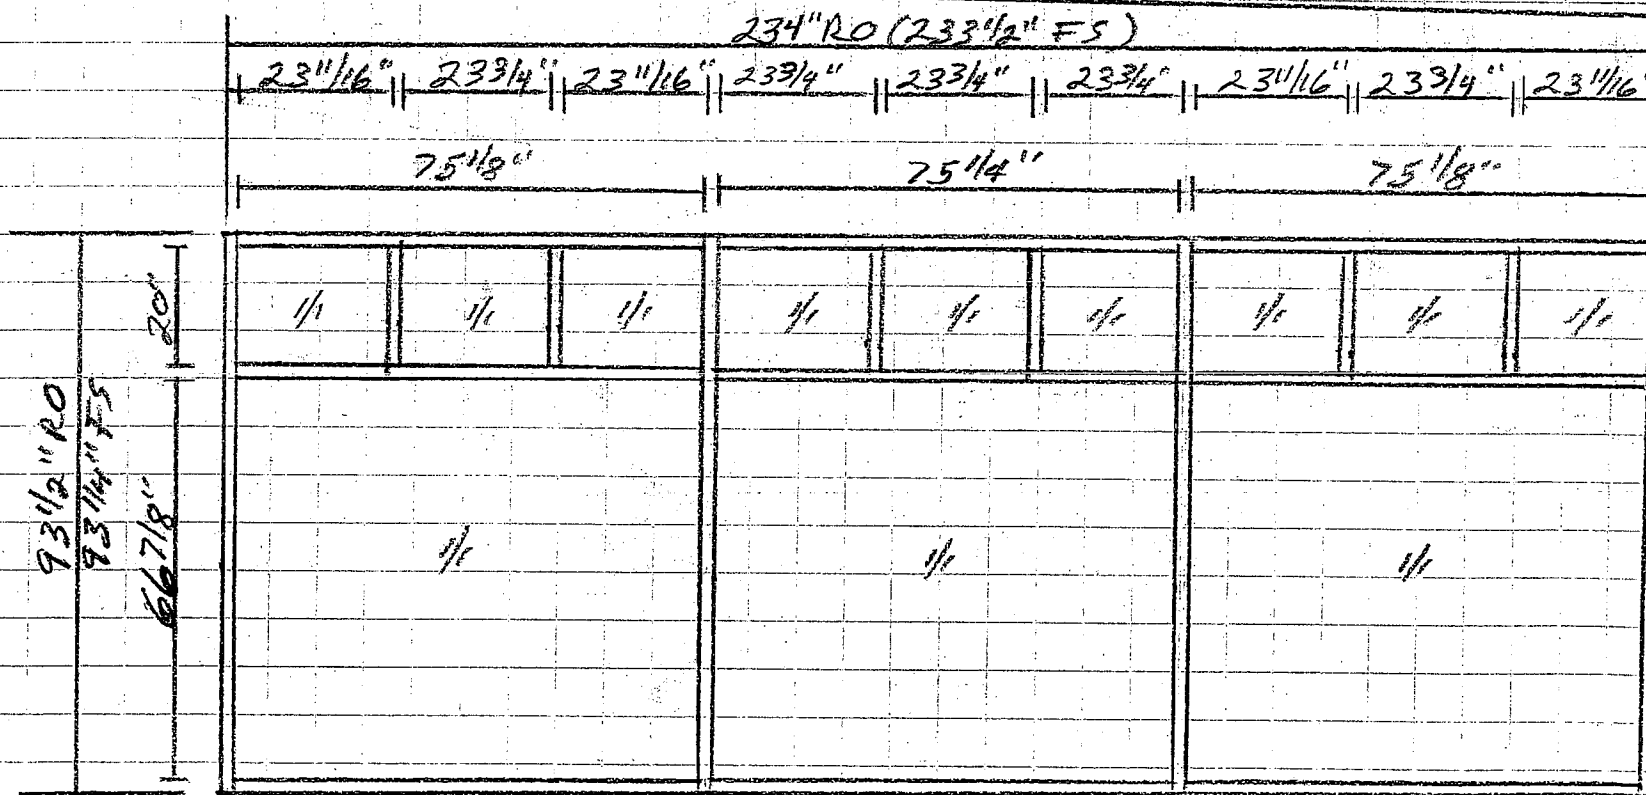 234" RO (233 1/2" FS)
23 11/16" 23 3/4" 23 11/16" 23 3/4" 23 3/4" 23 3/4" 23 11/16" 23 3/4" 23 11/16"
75 1/8" 75 1/4" 75 1/8"
20"
1/1 1/1 1/1 1/1 1/1 1/1 1/1 1/1 1/1
93 1/2" RO
93 1/4" FS
66 7/8"
1/1 1/1 1/1